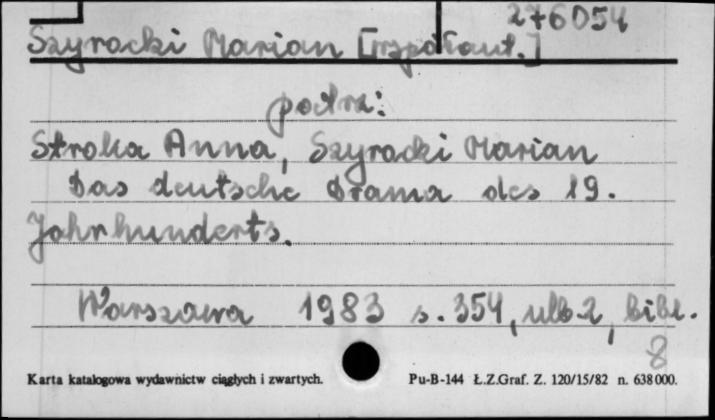 276054
Szyrocki Marian [współaut.]
patrz:
Stroka Anna, Szyrocki Marian
Das deutsche Drama des 19.
Jahrhunderts.
Warszawa 1983 s. 354, nlb. 2, bibl.
8
Karta katalogowa wydawnictw ciągłych i zwartych. Pu-B-144 Ł.Z.Graf. Z. 120/15/82 n. 638000.